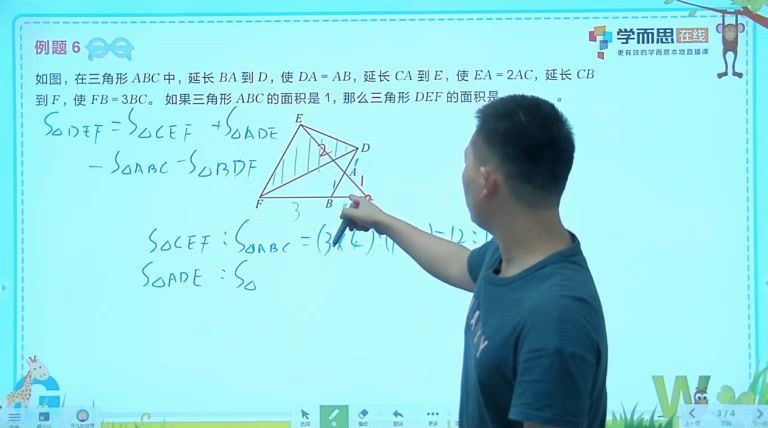 例题 6
学而思在线
更有效的学而思本地直播课
如图,在三角形 ABC 中,延长 BA 到 D,使 DA = AB,延长 CA 到 E,使 EA = 2AC,延长 CB
到 F,使 FB = 3BC。 如果三角形 ABC 的面积是 1,那么三角形 DEF 的面积是 。
S△DEF = S△CEF + S△ADE
- S△ABC - S△BDF
E
D
2
1
A
1
1
F
B
3
S△CEF : S△ABC = (3×4) = 12 :
S△ADE : S△
3 / 4